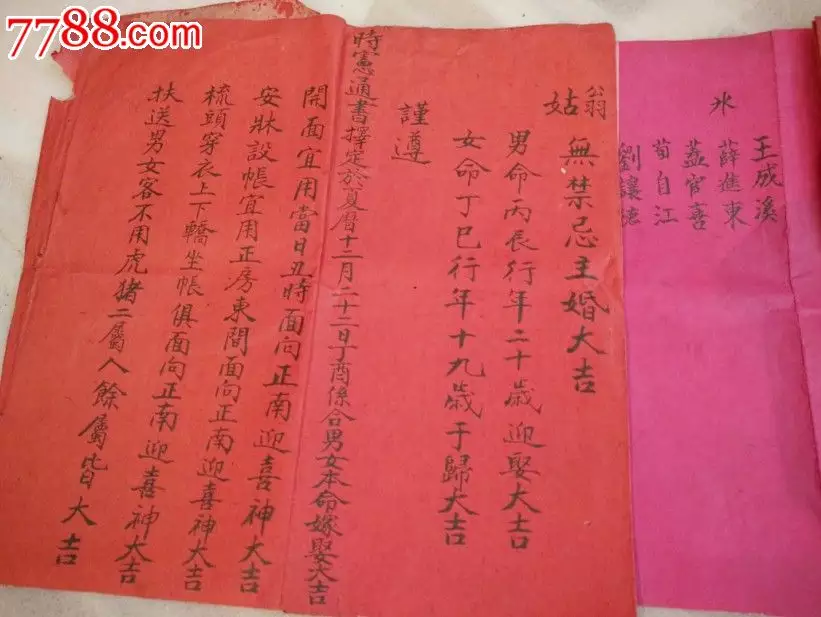 7788.com
冰
王成溪
薛進東
荀自江
翁
姑
無禁忌主婚大吉
男命丙辰行年二十歲迎娶大吉
女命丁巳行年十九歲于歸大吉
謹遵
時憲通書擇定於夏曆十二月二十二日丁酉係合男女本命嫁娶大吉
開面宜用當日丑時面向正南迎喜神大吉
安牀設帳宜用正房東間面向正南迎喜神大吉
梳頭穿衣上下轎坐帳俱面向正南迎喜神大吉
扶送男女客不用虎猪二屬人餘屬皆大吉